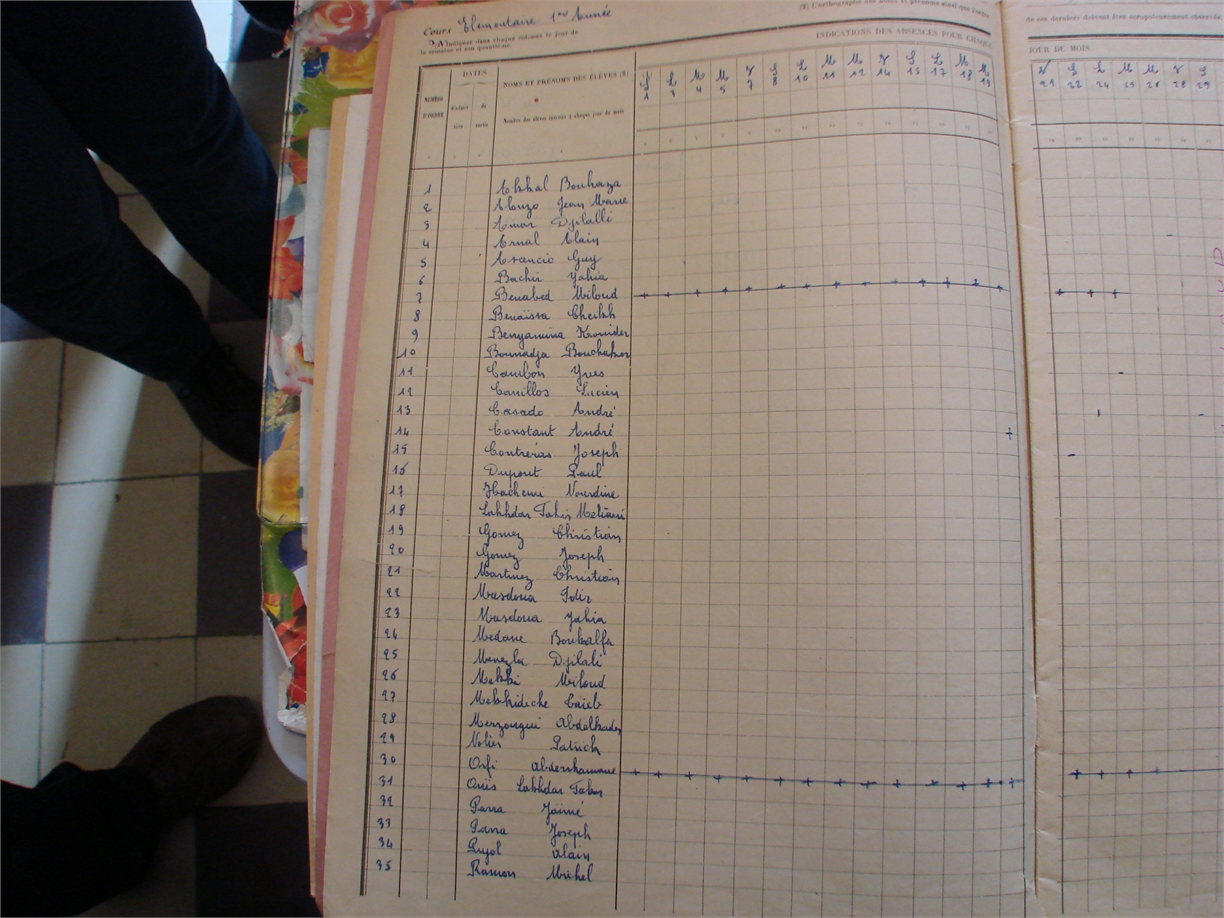 Cours Elementaire 1ère Année
Indiquer dans chaque colonne le jour de
la semaine et son quantième.
(2) L'orthographe des noms et prénoms ainsi que
de ces derniers doivent être scrupuleusement observés
INDICATIONS DES ABSENCES POUR CHAQUE
JOUR DE MOIS
NUMÉRO D'ORDRE
DATES
d'entrée
de sortie
NOMS ET PRÉNOMS DES ÉLÈVES (2)
Nombre des élèves inscrits à chaque jour du mois
S L M M V S L M M V S L M M
1 3 4 5 7 8 10 11 12 14 15 17 18 19
V S L M M V S
21 22 24 25 26 28 29
1 Akkal Bouhaza
2 Alonzo Jean Marie
3 Amar Djilalli
4 Arnal Alain
5 Arancio Guy
6 Bachir Yahia
7 Benabed Miloud
8 Benaïssa Cheikh
9 Benyamina Kouider
10 Bounadja Bouchaker
11 Cambon Yves
12 Canillos Lucien
13 Casado André
14 Constant André
15 Contreras Joseph
16 Dupont Paul
17 Hachemi Nourdine
18 Lakhdar Taher Meliani
19 Gomez Christian
20 Gomez Joseph
21 Martinez Christian
22 Masdoua Idir
23 Masdoua Yahia
24 Medane Boukalfa
25 Menezla Djilali
26 Mekki Miloud
27 Mekhidiche Taieb
28 Merzougui Abdelkader
29 Nolier Patrick
30 Orfi Abderrhamane
31 Ouis Lakhdar Taher
32 Parra Jaimé
33 Parra Joseph
34 Pujol Alain
35 Ramon Michel